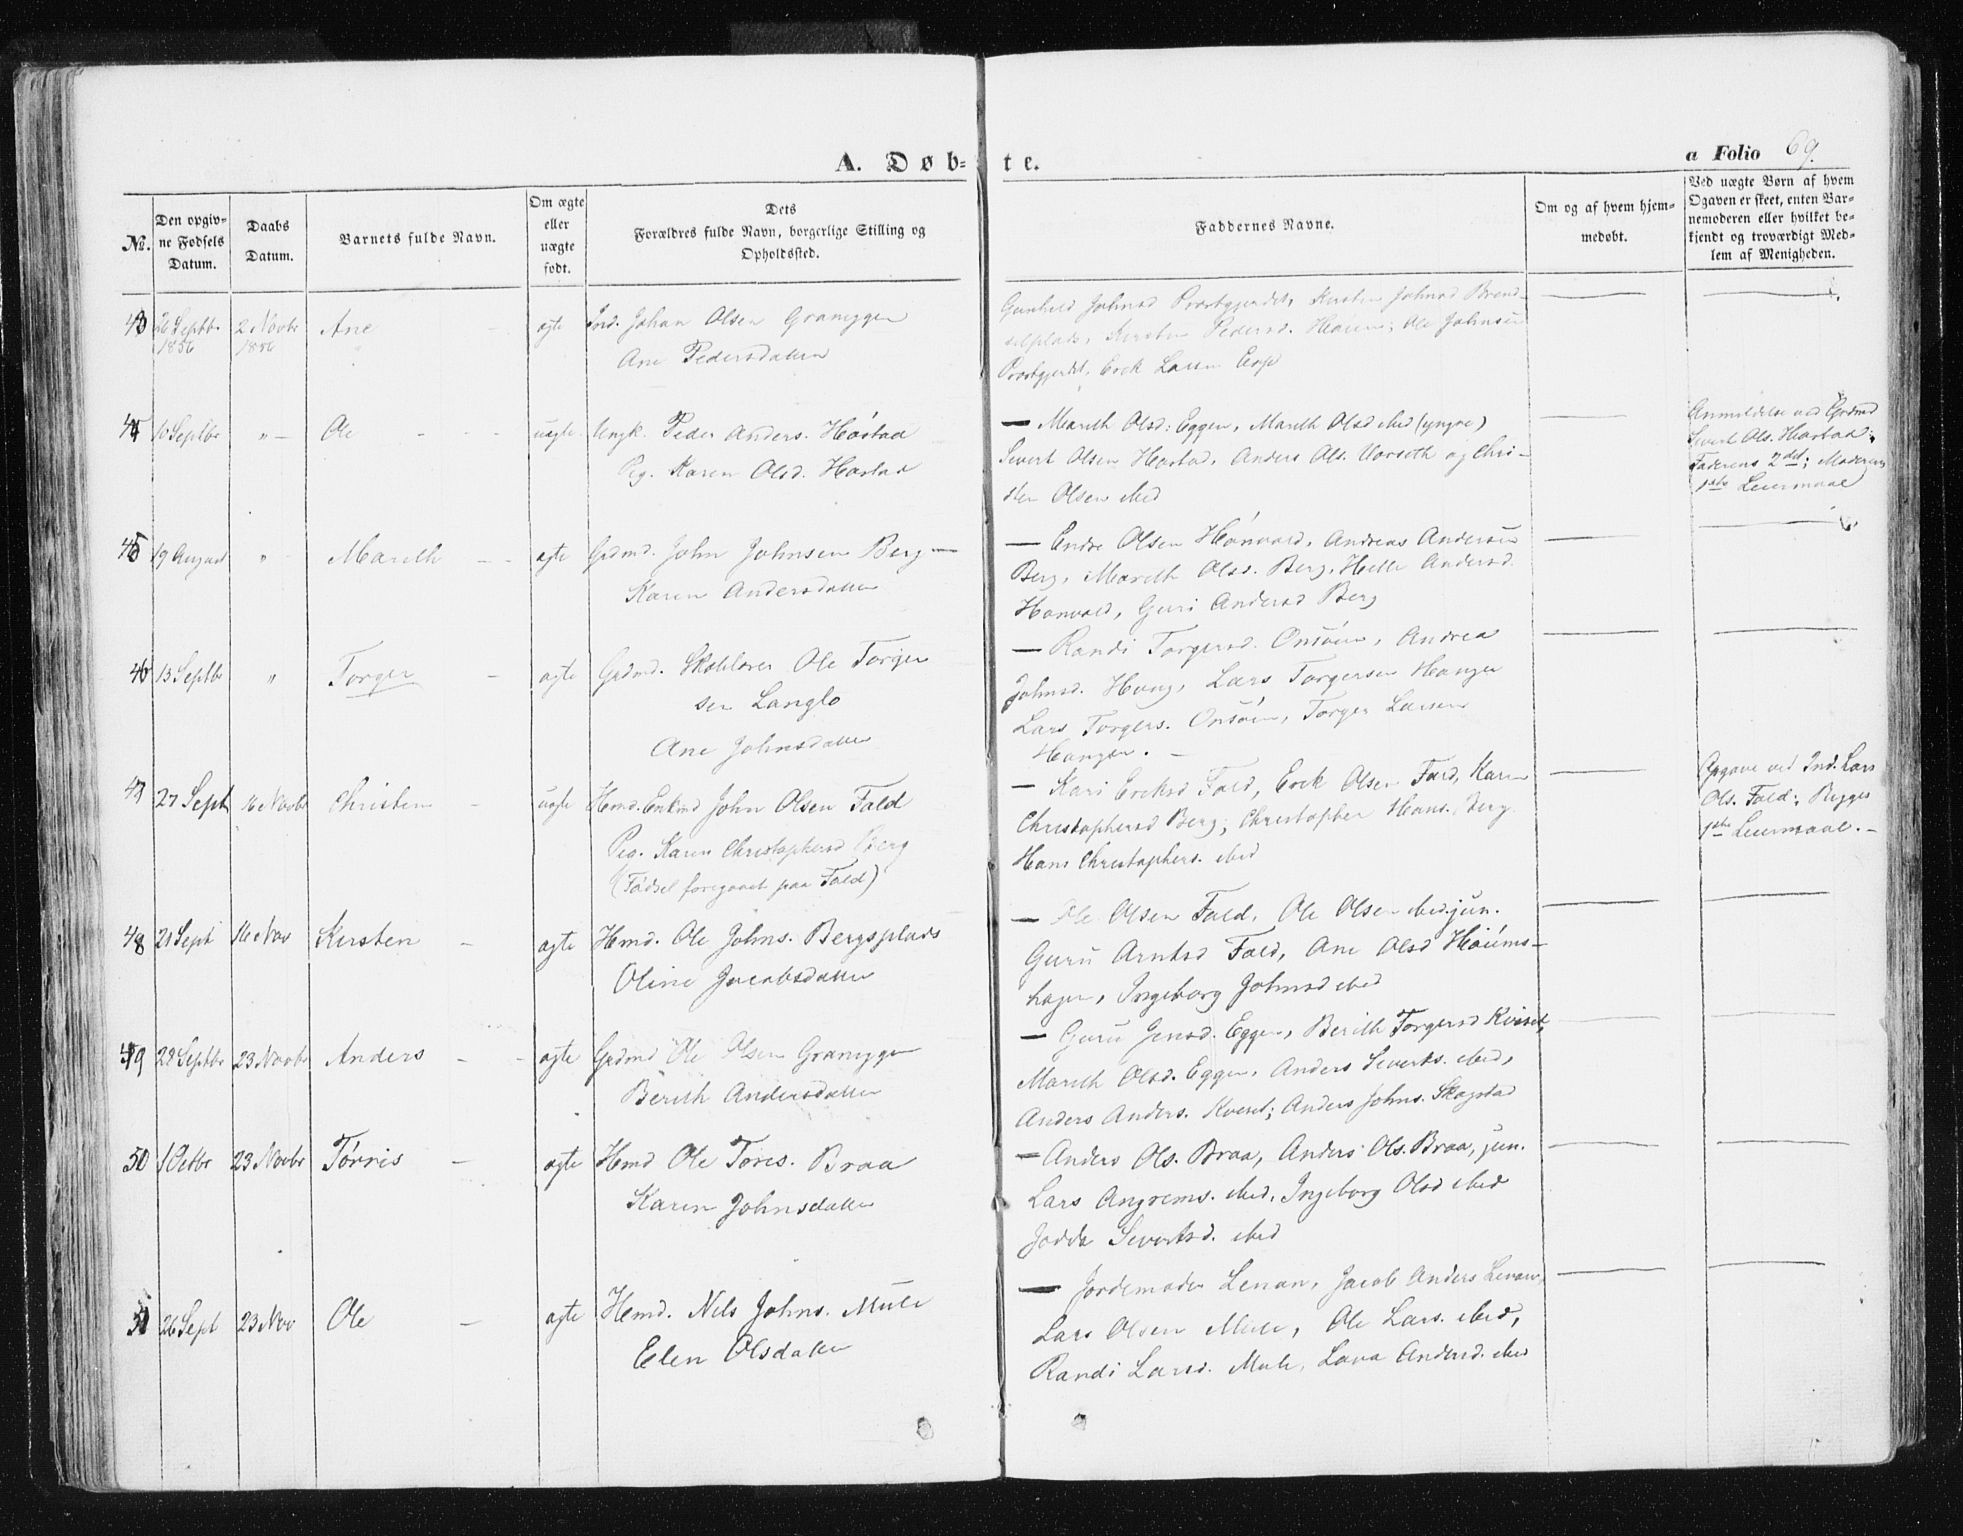 A. Døb-
te.
a Folio 69.
No.
Den opgiv-
ne Fødsels
Datum.
Daabs
Datum.
Barnets fulde Navn.
Om ægte
eller
uægte
født.
Dets
Forældres fulde Navn, borgerlige Stilling og
Opholdssted.
Faddernes Navne.
Om og af hvem hjem-
medøbt.
Ved uægte Børn af hvem
Ogaven er skeet, enten Bar-
nemoderen eller hvilket be-
kjendt og troværdigt Med-
lem af Menigheden.
43 26 Septbr 2 Novbr Ane ægte Johan Olsen Gramyggen
1856 1856
Ane Pedersdatter
Gunhild Johnsd Præstgjerdet, Kirsten Johnsd
Kirsten Pedersd. Ole Johnsen
Præstgjerdet, Erek Larsen
44 10 Septbr " Ole uægte Ungk. Peder Anders. Hastad
Pig. Karen Olsd. Hastad
— Mareth Olsd. Eggen, Mareth Olsd ibid (yngre)
Sivert Olsen Hastad, Anders Ols. og Chri-
sten Olsen ibid
Anmeldelse ved Grdmd
Sivert Ols. Hastad;
Faderens 2det; Moderens
1ste Leiermaal
45 19 August " Mareth ægte Grdmd. John Johnsen Berg
Karen Andersdatter
— Endre Olsen Honvald, Andreas Andersen
Berg, Mareth Olsd. Berg, Andersd.
Honvald, Guri Andersd Berg
46 13 Septbr " Torger ægte Grdmd. Skolelærer Ole Torger
sen Langlo
Ane Johnsdatter
— Randi Torgersd. Onsøien, Andrea
Johnsd. Haug, Lars Torgersen Hanger
Lars Torgers. Onsøien, Torger Larsen
Hanger.
47 27 Sept 16 Novbr Christen uægte Hmd. Enkmd John Olsen Fald
Pig. Karen Christophersd Berg
(Fødsel foregaaet paa Fald)
— Kari Ereksd Fald, Erek Olsen Fald, Karen
Christophersd Berg; Christopher Hans. Berg
Hans Christophers. ibid
Opgave ved Ind. Lars
Ols. Fald; Begges
1ste Leiermaal.
48 21 Sept 16 Nov Kirsten ægte Hmd. Ole Johns. Bergsplads
Oline Jacobsdatter
— Ole Olsen Fald, Ole Olsen ibid. jun.
Guru Arntsd Fald, Ane Olsd Høiums-
hagen, Ingeborg Johnsd ibid
49 28 Septbr 23 Novbr Anders ægte Grdmd Ole Olsen Gramyggen
Berith Andersdatter
— Guru Jensd. Eggen, Berith Torgersd Kviset,
Mareth Olsd. Eggen, Anders Siverts. ibid,
Anders Anders. Kviset; Anders Johns. Skogstad
50 1 Octbr 23 Novbr Tørris ægte Hmd Ole Tøris. Braa
Karen Johnsdatter
— Anders Ols. Braa, Anders Ols. Braa, jun.
Lars Angrems. ibid, Ingeborg Olsd ibid
Sivertsd. ibid
51 26 Sept 23 Nov Ole ægte Hmd. Nils Johns. Mule
Elen Olsdatter
— Jordemoder Lenan, Jacob Anders Lenan,
Lars Olsen Mule, Ole Lars. ibid,
Randi Larsd. Mule, Lava Andersd. ibid